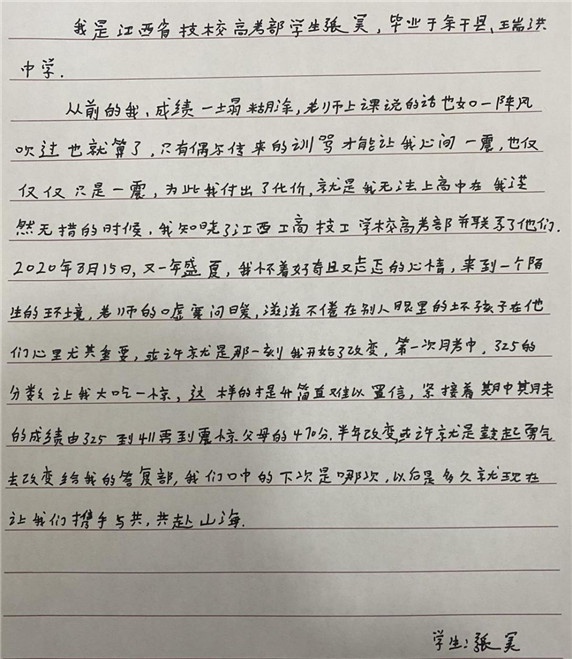 我是江西省技校高考部学生張昊，毕业于余干县、玉瑞洪
中学.
从前的我、成绩一塌糊涂，老师上课说的话也如一阵风
吹过也就算了，只有偶尔传来的训骂才能让我心间一震，也仅
仅仅只是一震，为此我付出了代价，就是我无法上高中在我茫
然无措的时候，我知晓了江西工商技工学校高考部并联系了他们.
2020年8月15日，又一年盛夏，我怀着好奇且又忐忑的心情，来到一个陌
生的环境，老师的嘘寒问暖，滋滋不倦在别人眼里的坏孩子在他
们心里尤其重要，或许就是那一刻我开始了改变，第一次月考中，325的
分数让我大吃一惊，这样的提升简直难以置信，紧接着期中期末
的成绩由325到411再到震惊父母的470分.半年改变，或许就是鼓起勇气
去改变给我的答复部，我们口中的下次是哪次，以后是多久就现在
让我们携手与共，共赴山海.
学生：張昊